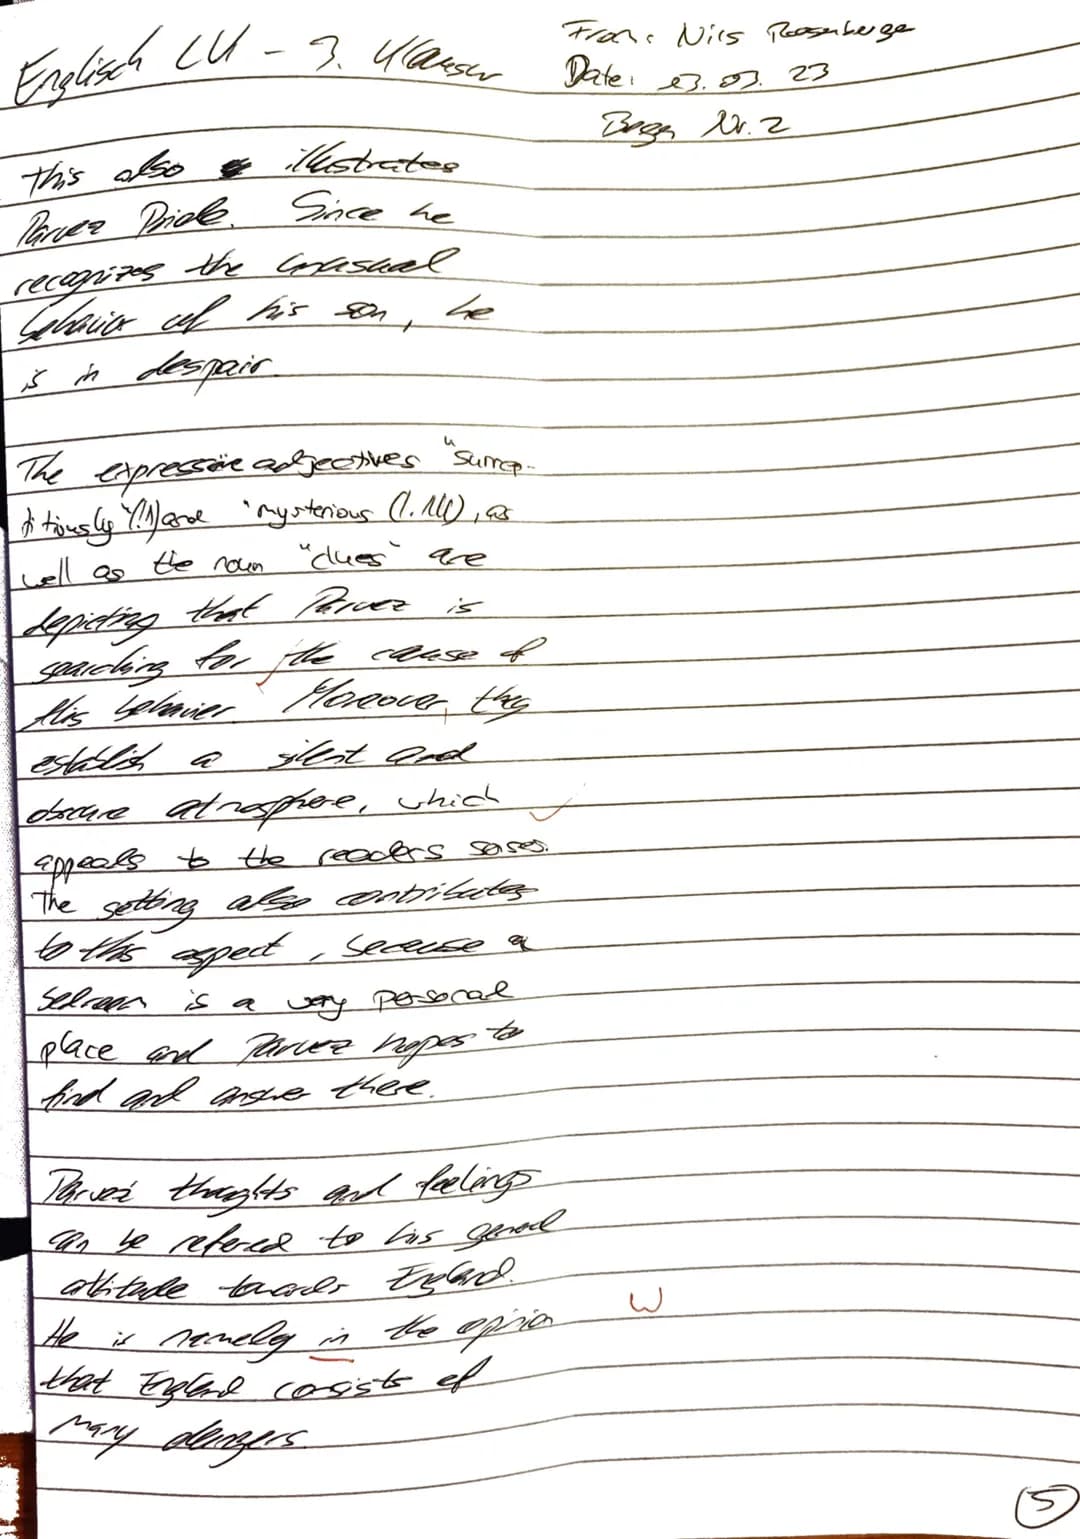 Englisch LU - 3. Klausur
From: Nils Roosenberge
Date: 23.03.23
Bogen Nr. 2
This also illustrates
Parvez Pride. Since he
recognizes the unusual
behavior of his son, he
is in despair.
The expressive adjectives "surrep-
titiously" (l.1) and "mysterious (l. 14), as
well as the noun "clues" are
depicting that Parvez is
searching for the cause of
this behavier. Moreover, they
establish a silent and
obscure atmosphere, which
appeals to the readers senses.
The setting also contributes
to this aspect, because a
bedroom is a very personal
place and Parvez hopes to
find and answer there.
Parvez' thoughts and feelings
can be refered to his general
attitude towards England.
He is namely in the opinion
W
that England consists of
many dangers.
5